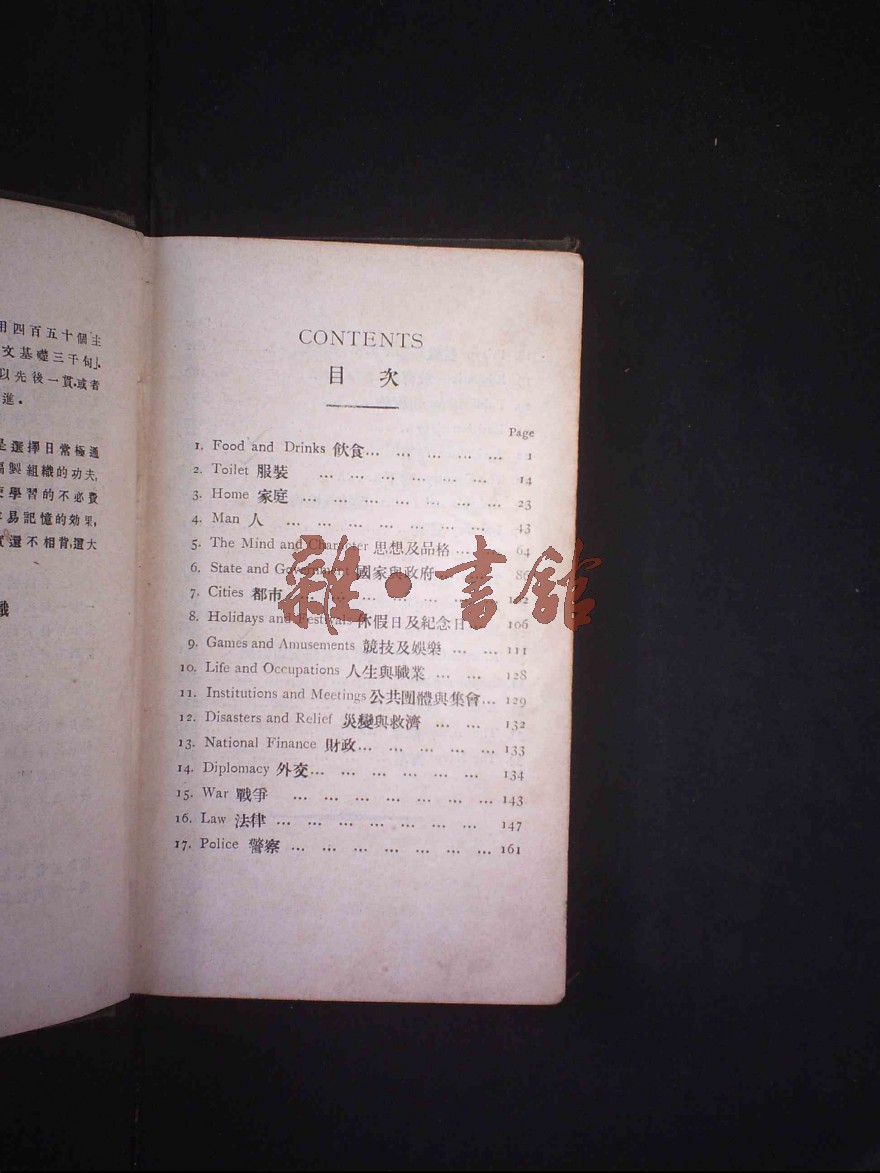 用四百五十個主
文基礎三千句」.
以先後一貫.或者
進.
是選擇日常極通
編製組織的功夫,
更學習的不必費
容易記憶的效果,
實還不相背.還大
識
CONTENTS
目 次
Page
1. Food and Drinks 飲食... ... ... ... ... ... 1
2. Toilet 服裝 ... ... ... ... ... ... 14
3. Home 家庭 ... ... ... ... ... ... ... 23
4. Man 人 ... ... ... ... ... ... ... 43
5. The Mind and Character 思想及品格 ... ... 64
6. State and Government 國家與政府 ... ... 86
7. Cities 都市 ... ... ... ... ... ... 102
8. Holidays and Festivals 休假日及紀念日 ... 106
9. Games and Amusements 競技及娛樂 ... ... 111
10. Life and Occupations 人生與職業 ... ... 128
11. Institutions and Meetings 公共團體與集會... 129
12. Disasters and Relief 災變與救濟 ... ... 132
13. National Finance 財政... ... ... ... ... 133
14. Diplomacy 外交... ... ... ... ... ... 134
15. War 戰爭 ... ... ... ... ... ... ... 143
16. Law 法律 ... ... ... ... ... ... ... 147
17. Police 警察 ... ... ... ... ... ... ... 161
雜·書館